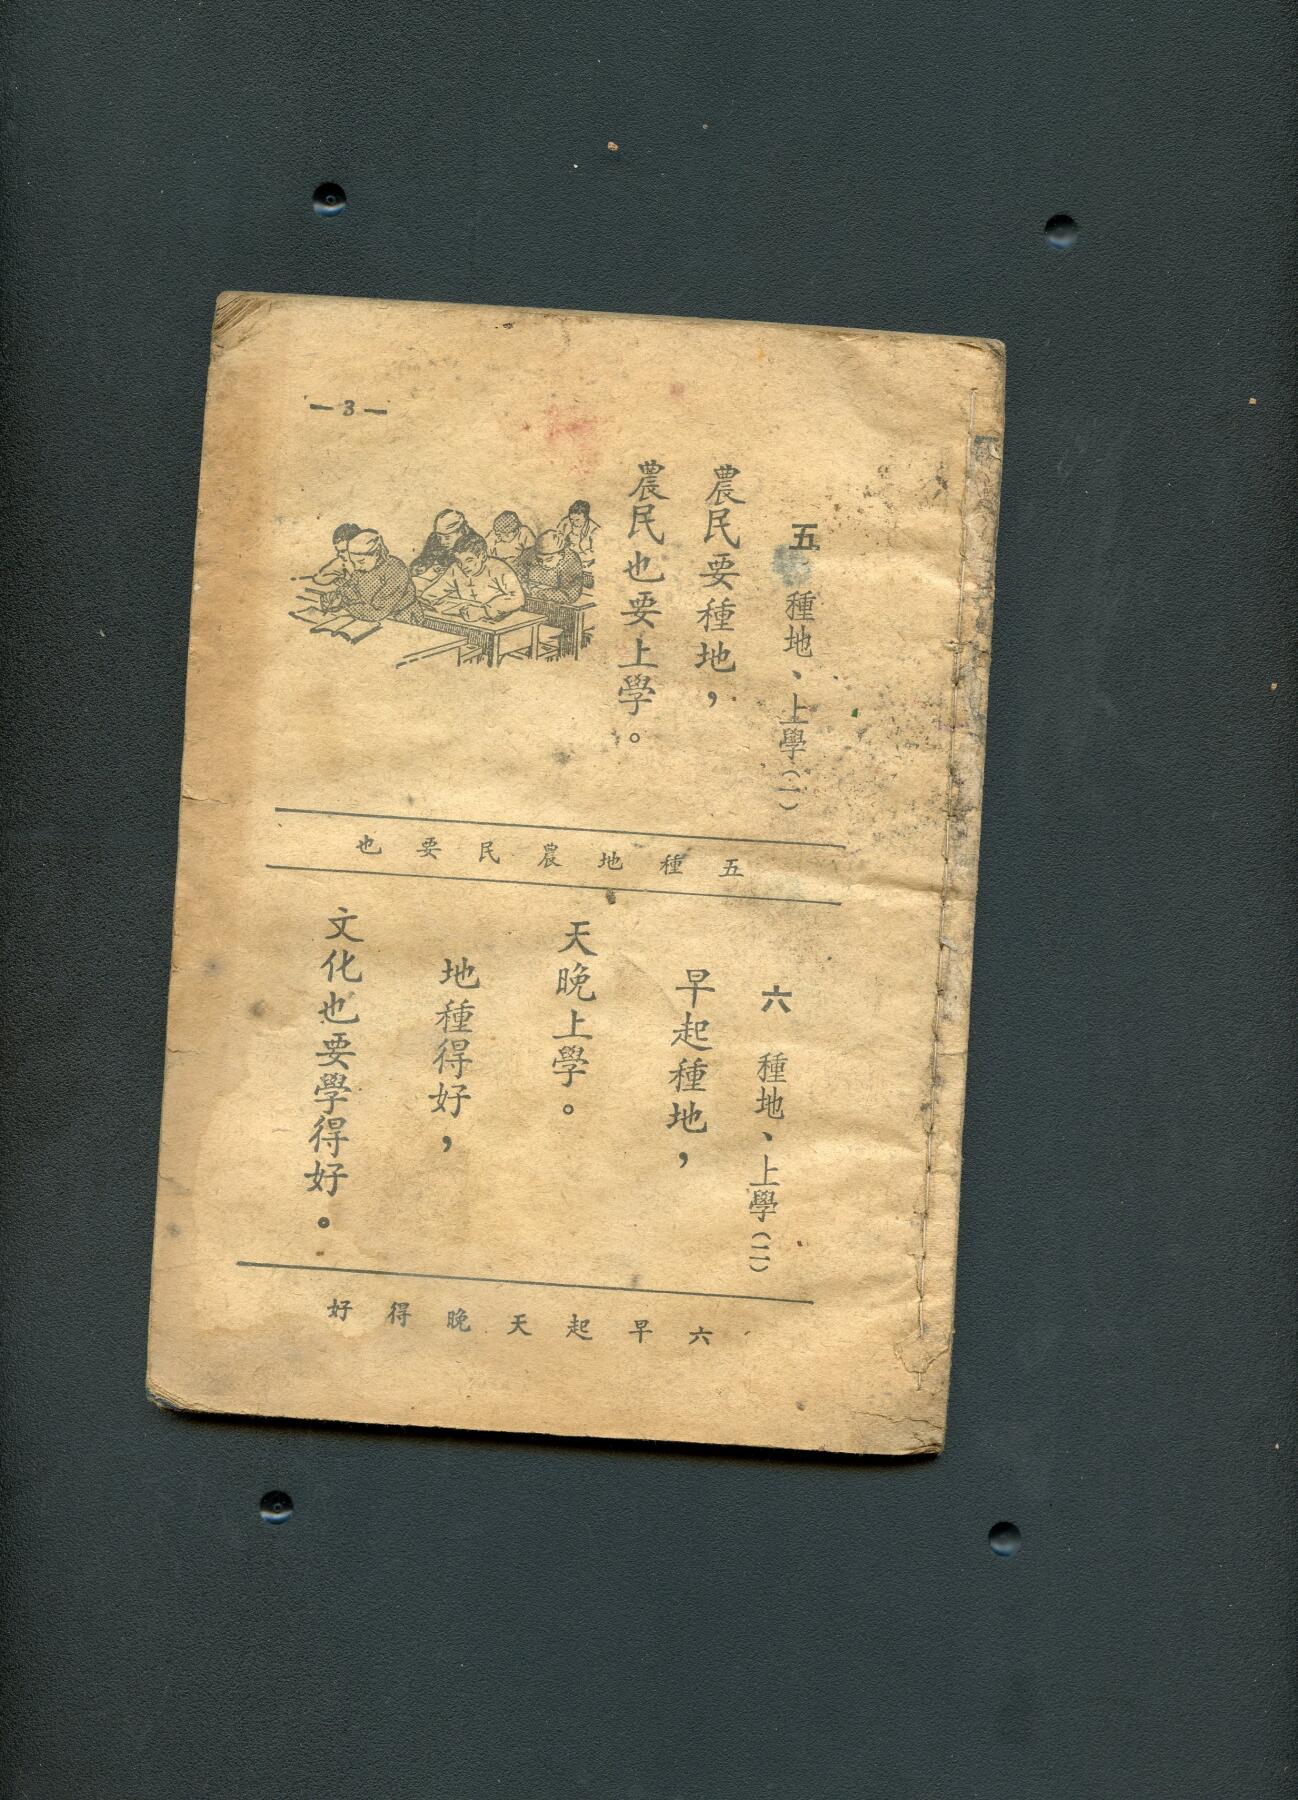 — 3 —
五 種地、上學（一）
農民要種地，
農民也要上學。
五 種 地 農 民 要 也
六 種地、上學（二）
早起種地，
天晚上學。
地種得好，
文化也要學得好。
六 早 起 天 晚 得 好